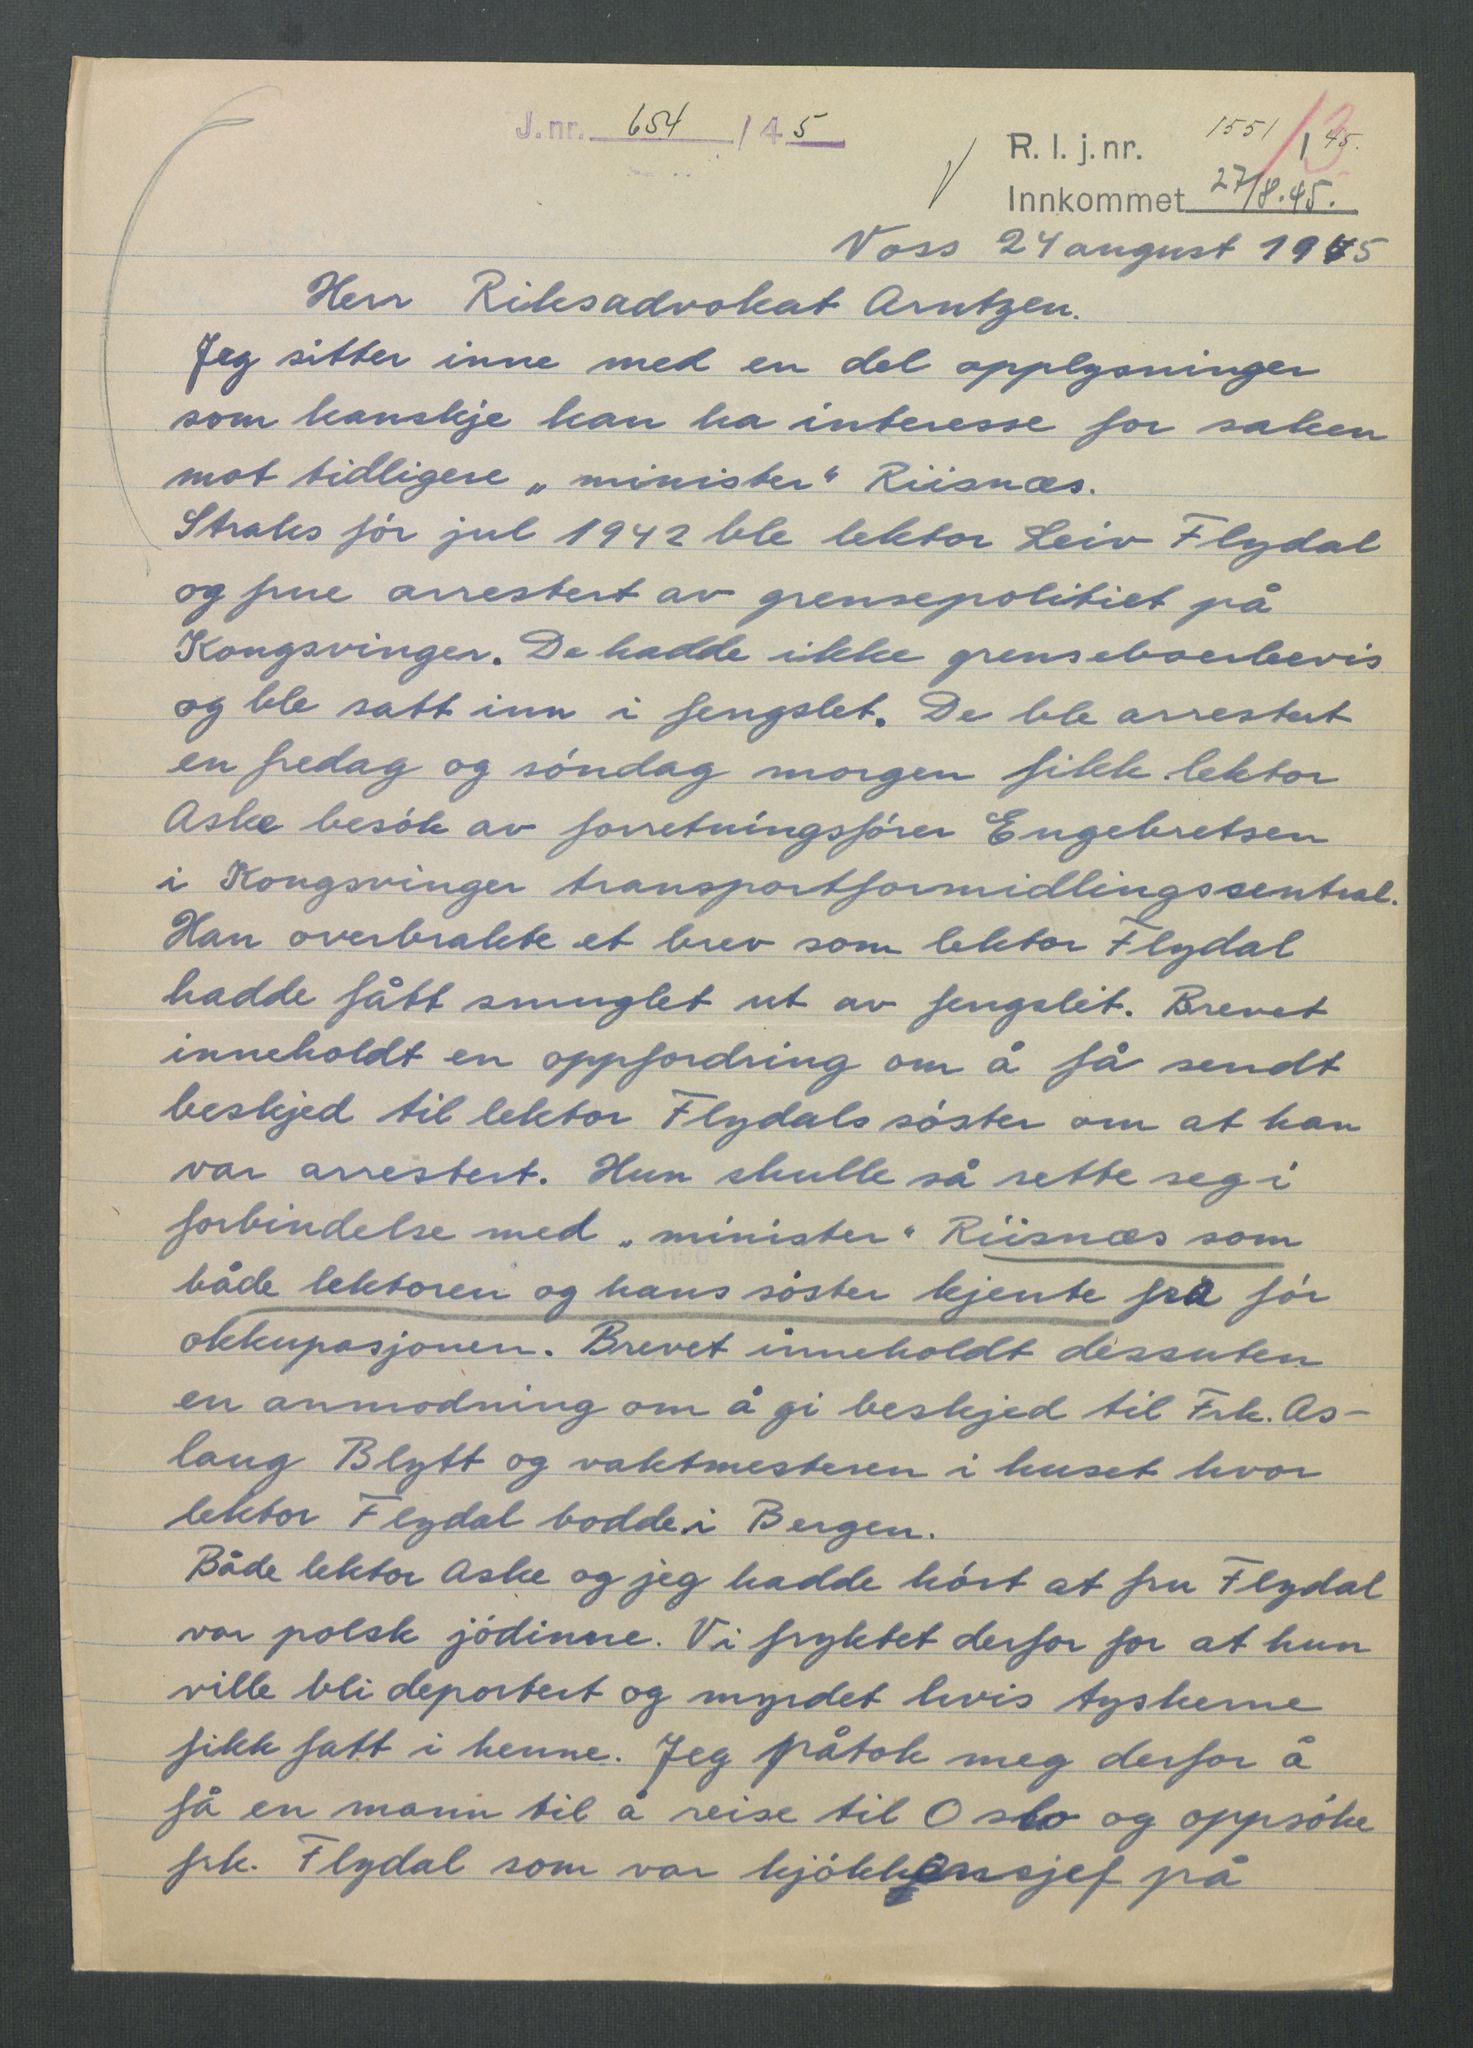 J. nr. 654 / 45
R. l. j. nr. 1551 / 45.
13
Innkommet 27/8.45.
Voss 24 august 1945
Herr Riksadvokat Arntzen.
Jeg sitter inne med en del opplysninger
som kanskje kan ha interesse for saken
mot tidligere „minister" Riisnæs.
Straks før jul 1942 ble lektor Leiv Flydal
og frue arrestert av grensepolitiet på
Kongsvinger. De hadde ikke grenseboerbevis
og ble satt inn i fengslet. De ble arrestert
en fredag og søndag morgen fikk lektor
Aske besøk av forretningsfører Engebretsen
i Kongsvinger transportformidlingssentral.
Han overbrakte et brev som lektor Flydal
hadde fått smuglet ut av fengslet. Brevet
inneholdt en oppfordring om å få sendt
beskjed til lektor Flydals søster om at han
var arrestert. Hun skulle så sette seg i
forbindelse med „minister" Riisnæs som
både lektoren og hans søster kjente fra før
okkupasjonen. Brevet inneholdt dessuten
en anmodning om å gi beskjed til Frk. As-
laug Blytt og vaktmesteren i huset hvor
lektor Flydal bodde i Bergen.
Både lektor Aske og jeg hadde hørt at fru Flydal
var polsk jødinne. Vi fryktet derfor for at hun
ville bli deportert og myrdet hvis tyskerne
fikk fatt i henne. Jeg påtok meg derfor å
få en mann til å reise til Oslo og oppsøke
frk. Flydal som var kjøkkensjef på